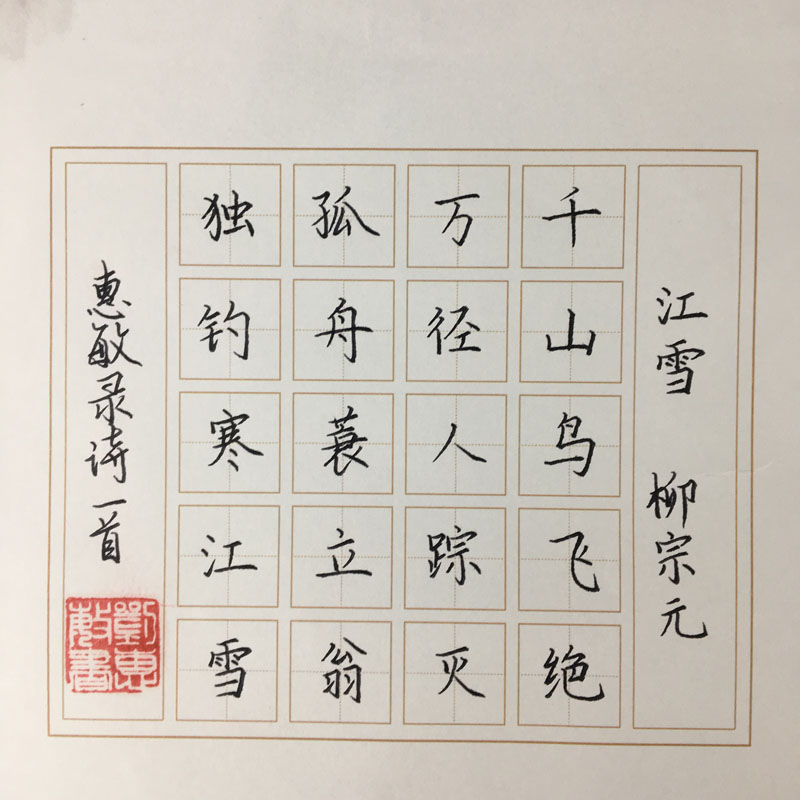 江雪 柳宗元
千山鸟飞绝
万径人踪灭
孤舟蓑立翁
独钓寒江雪
惠敏录诗一首
劉惠
敏書